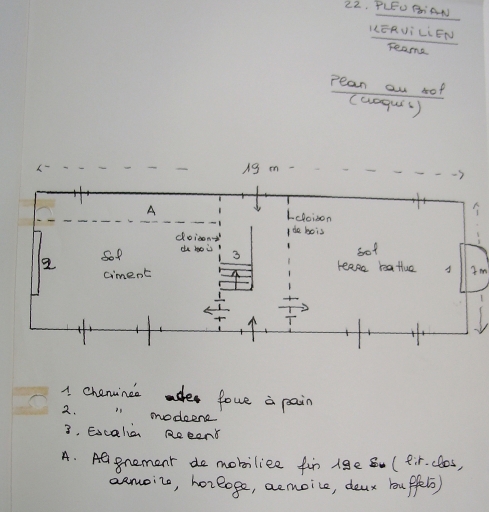 22. PLEUBIAN
KERVILIEN
Ferme
Plan au sol
(croquis)
19 m
A
cloison
de bois
cloison
de bois
3
2
Sol
ciment
sol
terre battue
1
7m
1 Cheminée avec four à pain
2. " moderne
3. Escalier Recent
A. Alignement de mobilier fin 19e S. (lit-clos,
armoire, horloge, armoire, deux buffets)